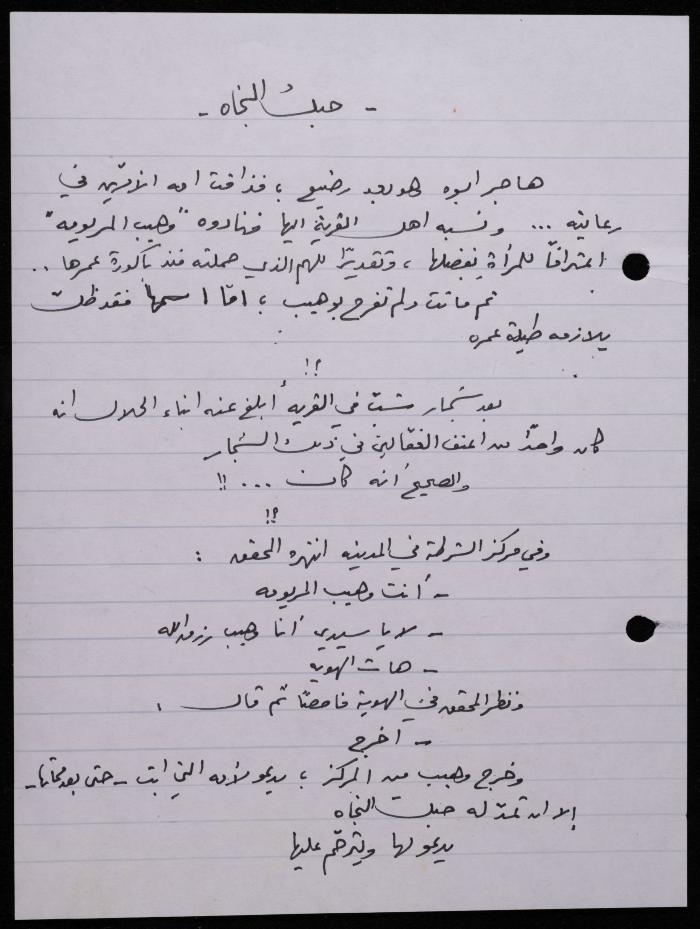 - حبل النجاه -
هاجر ابوه وهو بعد رضيع ، فذاقت امه الامرّين في
رعايته ... ونسبه اهل القرية اليها فنادوه "وهيب المريومه"
اعترافاً للمرأة بفضلها ، وتقديرًا للهم الذي حملته منذ باكورة عمرها ..
ثم ماتت ولم تفرح بوهيب ، امّا اسمها فقد ظلت
يلازمه طيلة عمره
؟!
بعد شجار شبّ في القريه أبلغ عنه ابناء الحلال انه
كان واحدًا من اعنف الفعّالين في ذلك الشجار
والصحيح أنه كان ... !!
؟!
وفي مركز الشرطة في المدينه انتهره المحقق :
- أنت وهيب المريومه
- لا يا سيدي أنا وهيب رزق الله
- هات الهويه
ونظر المحقق في الهوية فاحصًا ثم قال :
- اخرج
وخرج وهيب من المركز ، يدعو لأمه التي ابت - حتى بعد مماتها -
إلا ان تمدّ له حبل النجاه
يدعو لها ويترحّم عليها